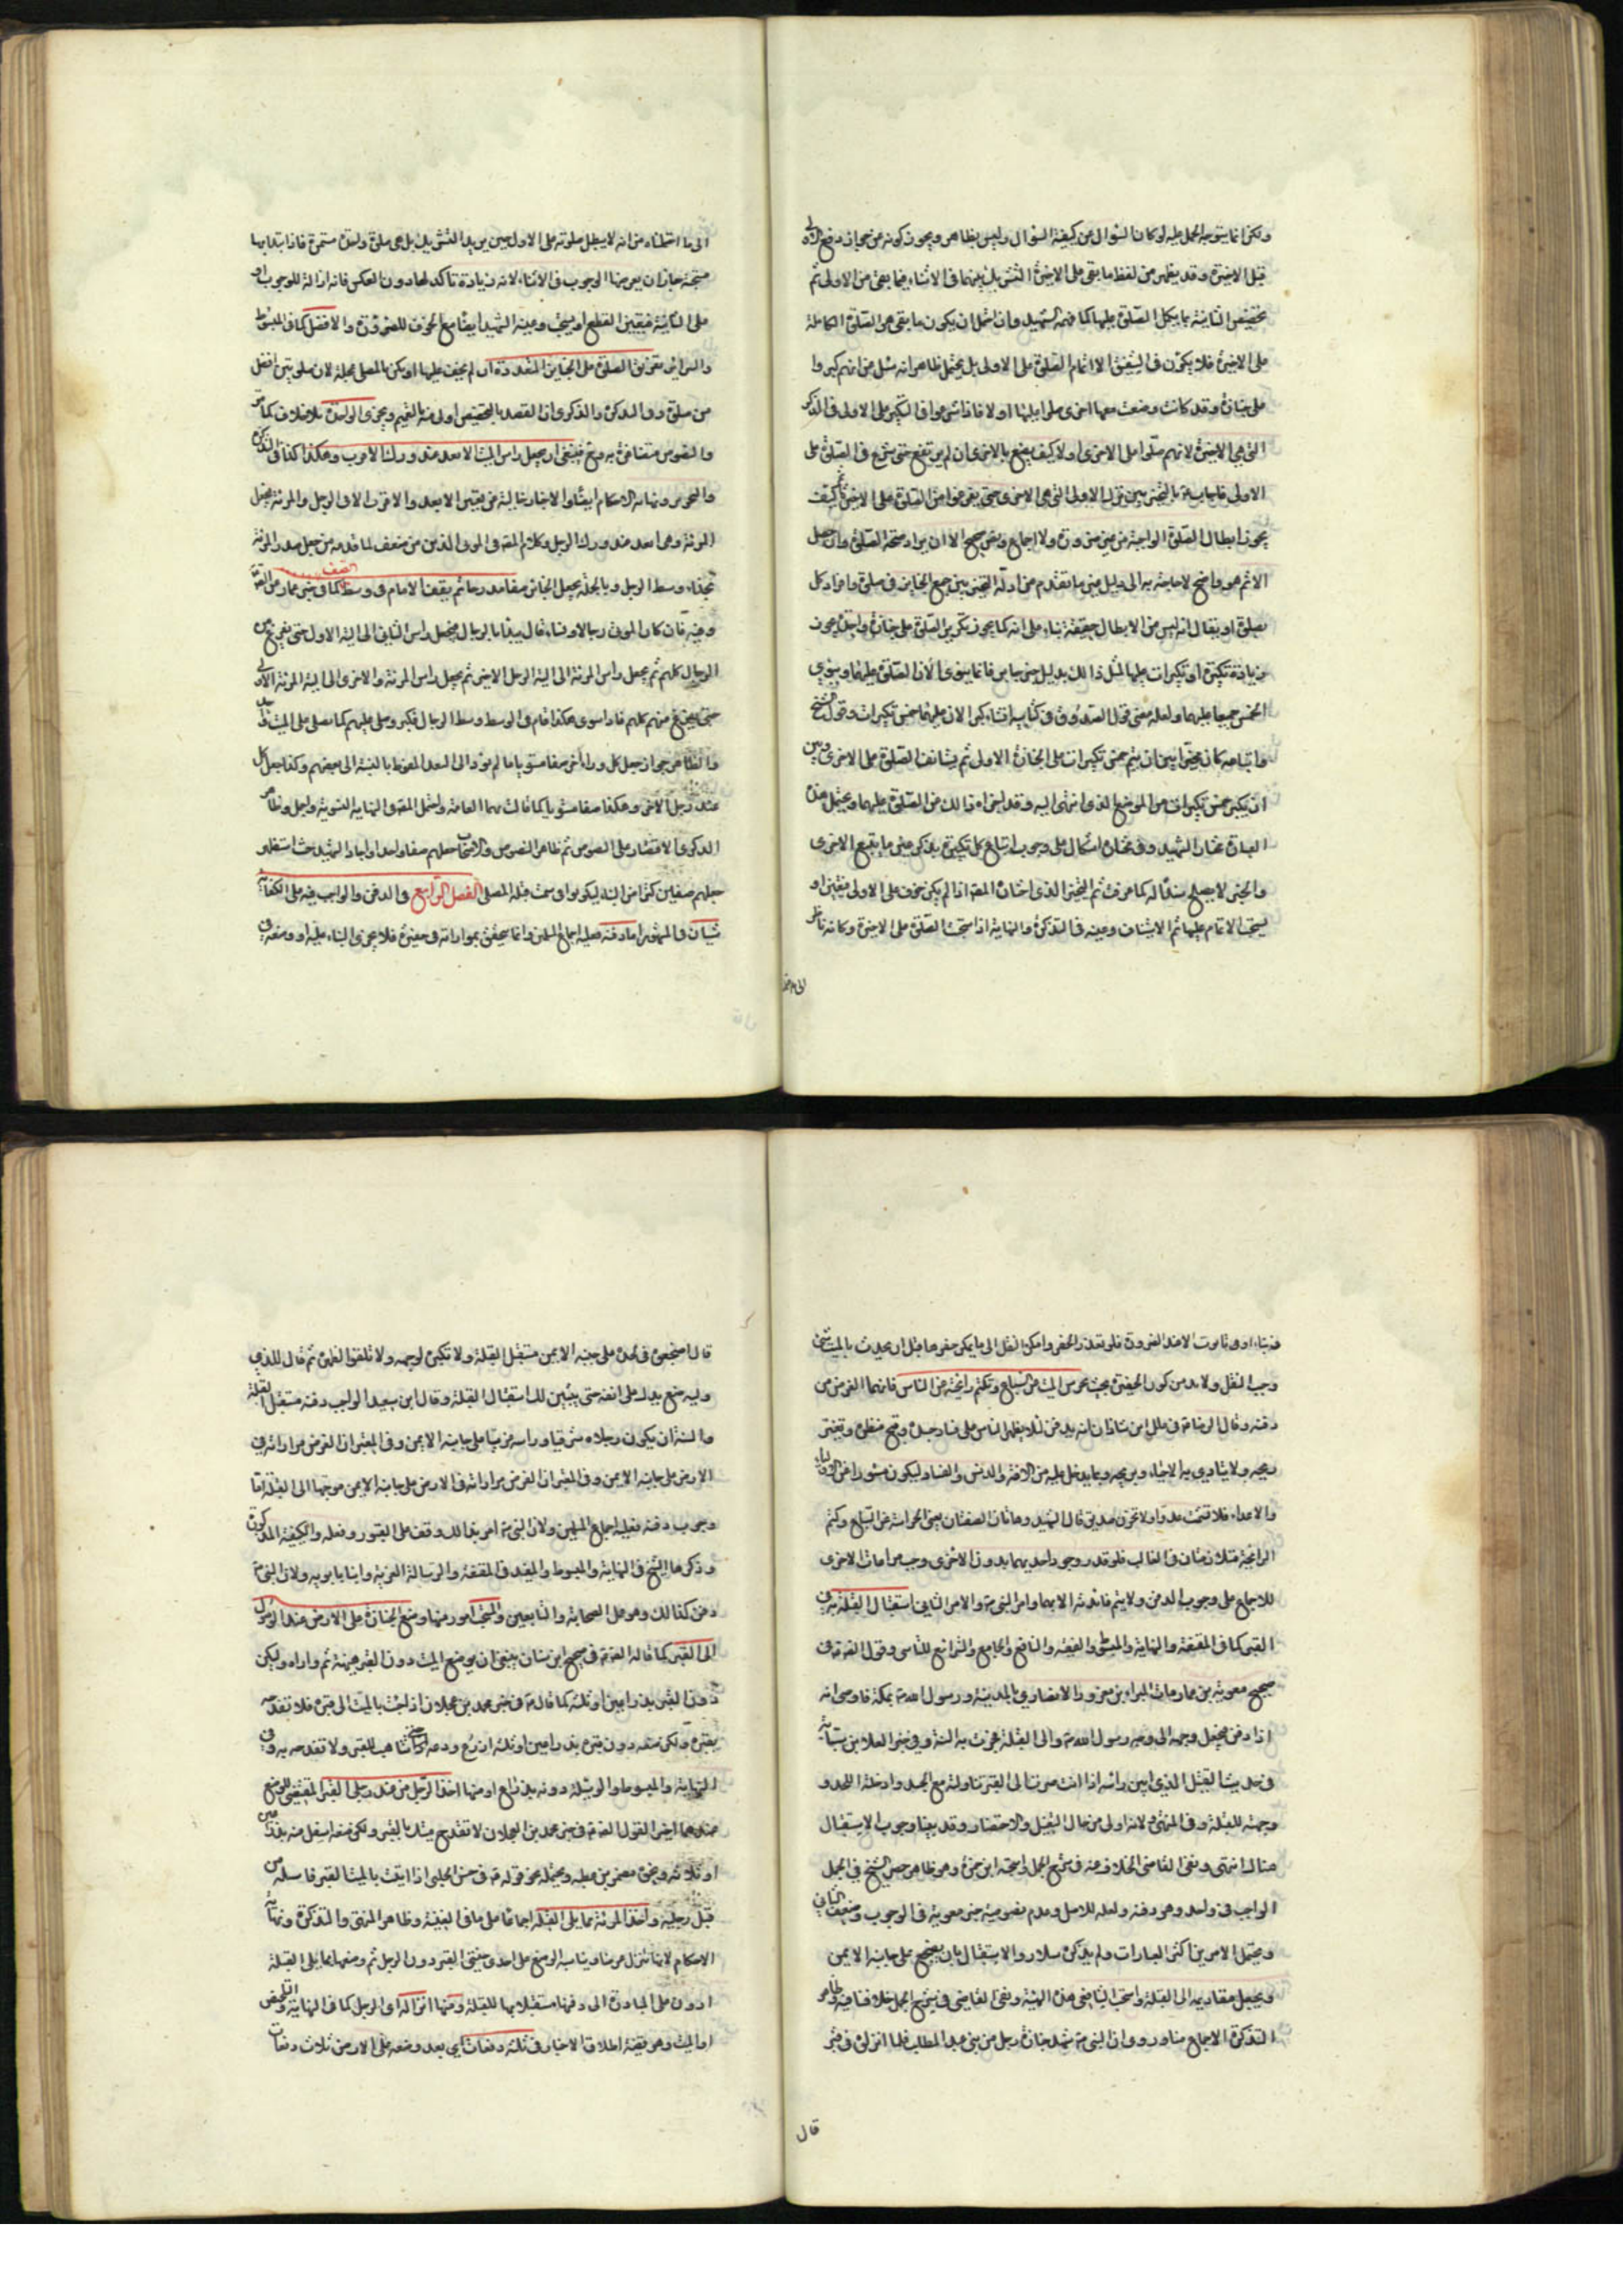 ولكن انما يتوجه الحمل عليه لو كان السؤال عن كيفية السؤال وليس بظاهر ويجوز كونه عن جواز رفع الاولى
قبل الاخيرة وقد يظهر من لفظ ما بقي على الاخيرة التشريك بينهما في الاثناء فيما بقي من الاولى ثم
تخصيص الثانية بما يكمل الصلوة عليها كما فهمه الشهيد وان احتمل ان يكون ما بقي هو الصلوة الكاملة
على الاخيرة فلا يكون في الشقين الا اتمام الصلوة على الاولى بل يحتمل ظاهرا انه سئل عن انهم كبروا
على جنازة وقد كانت وضعت معها اخرى صلوا عليها اولا فاذا شرعوا في التكبير على الاولى في الذكر
التي هي الاخيرة لانهم صلوا على الاخرى اولا كيف يصنع بالاخرى ان لم يرتفع حتى شرع في الصلوة على
الاولى فاجاب ع بالتخيير بين ترك الاولى التي هي الاخرى حتى يفرغوا من الصلوة على الاخيرة ثم كيف
يجوز ابطال الصلوة الواجبة من غير ضرورة ولا اجماع ونص صحيح الا ان يراد صحة الصلوة وان حصل
الاثم هو واضح لا حاجة به الى دليل غير ما تقدم من ادلة التخيير بين جمع الجنايز في صلوة وافراد كل
بصلوة او يقال انه ليس من الابطال حقيقة بناء على انه كما يجوز تكرير الصلوة على جنازة واحدة يجوز
زيادة تكبيرة او تكبيرات عليها لمثل ذلك بدليل خبر جابر فانما ينوي الان الصلوة عليهما وينوي
الخمس جميعا عليهما ولعله معنى قول الصدوق في كتابيه انشاء كبر الان عليهما خمس تكبيرات وقول الشيخ
واتباعه كان مخيرا بين ان يتم خمس تكبيرات على الجنازة الاولى ثم يستانف الصلوة على الاخرى وبين
ان يكبر خمس تكبيرات من الموضع الذي انتهى اليه وقد اجزاه ذلك من الصلوة عليهما ويحتمل هذه
العبارة مختار الشهيد وفي مختاره اشكال على وجوب اتباع كل تكبيرة بذكر غير ما يتبع الاخرى
والخبر لا يصلح سندا له كما عرفت ثم التخيير الذي اختاره المصنف اذا لم يكن خوف على الاولى فيتعين او
يستحب الاتمام عليها ثم الاستيناف وعينه في التذكرة والنهاية اذا استحبت الصلوة على الاخيرة وكانه ناظر
الى ما
الى ما احتطناه من انه لا يبطل صلوته على الاول حين يريد التشريك بل هي صلوة واحدة مستمرة فاذا ابتدا بها
مستحبة جاز ان يعرضها الوجوب في الاثناء لانه زيادة تاكد لها دون العكس فانه ازالة للوجوب او
على الثانية فيتعين القطع او يستحب وعينه الشهيد ايضا مع الخوف للضرورة والافضل كما في المبسوط
والسراير تفريق الصلوة على الجنايز المتعددة ان لم يخف عليها او يكن بالمصلى عجلة لان صلوتين افضل
من صلوة وفي التذكرة والذكرى ان القصد بالتخصيص اولى منه بالتعميم ويجزي الواحدة بلا خلاف كما مر
والنصوص متضافرة به ومع فينبغي ان يجعل راس الميت الابعد عند ورك الاقرب وهكذا كذا في التذكرة
والتحرير ونهاية الاحكام ايضا والاخبار خالية من تعيين الابعد والاقرب الا في الرجل والمرئة فيجعل
المرئة وهي ابعد عند ورك الرجل وكلام المصنف في المرئى الذين من صنف لما قدمه من جعل صدر المرئة
بحذاء وسط الرجل وبالجملة يجعل الجنايز صفا مدرجا ثم يقف الامام في وسط الصف كما في خبر عمار عن الصادق ع
وفيه قال فان كان الموتى رجالا ونساء قال يبدا بالرجال فيجعل راس الثاني الى الية الاول حتى يفرغ من
الرجال كلهم ثم يجعل راس المرئة الى الية الرجل الاخير ثم يجعل راس المرئة والاخرى الى الية المرئة الاولى
حتى يفرغ منهم كلهم فاذا سوى هكذا قام في الوسط وسط الرجال فكبر وصلى عليهم كما يصلى على الميت واحد
والظاهر جواز جعل كل وراء اخر صفا مستويا ما لم يؤد الى البعد المفرط بالنسبة الى بعضهم وكذا جعل كل
عند رجل الاخر وهكذا صفا مستويا كما قالت بهما العامة واحتمل المصنف في النهاية التسوية واجل وظاهر
الذكرى الاقتصار على النصوص ثم ظاهر النصوص والاصحاب جعلهم صفا واحدا واجاد الشهيد حيث استظهر
جعلهم صفين كتراص البناء ليكونوا سمت قبلة المصلى الفصل الرابع في الدفن والواجب فيه على الكفاية
شيئان في المشهور اما دفنه فعليه اجماع المسلمين وانما يتحقق بمواراته في حفيرة فلا يجزي البناء عليه او وضعه في
في بناء او في تابوت الا عند الضرورة فلو تعذر الحفر وامكن النقل الى ما يمكن حفرها قبل ان يحدث بالميت شيء
وجب النقل ولا بد من كون الحفيرة بحيث تحرس الميت عن السباع وتكتم رايحته عن الناس فانهما الغرض من
دفنه وقال الرضا ع في علل ابن شاذان انه يدفن لئلا يظهر الناس على فساد جسده وقبح منظره وتغير
ريحه ولا يتاذي به الاحياء وبريحه وبما يدخل عليه من الافة والدنس والفساد وليكون مستورا عن الاولياء
والاعداء فلا تشمت عدو ولا يحزن صديق قال الشهيد وهاتان الصفتان يعني الحراسة عن السباع وكتم
الرايحة متلازمتان في الغالب فلو قدر وجود احديهما بدون الاخرى وجب مراعات الاخرى
للاجماع على وجوب الدفن ولا يتم فائدته الا بهما وامر النبي ص به والامر الثاني استقبال القبلة به في
القبر كما في المقنعة والنهاية والمبسوط والغنية والنافع والجامع والشرائع للتاسي وقول الصادق ع في
صحيح معوية بن عمار مات البراء بن معرور الانصاري بالمدينة ورسول الله ص بمكة فاوصى انه
اذا دفن فيجعل وجهه الى وجه رسول الله ص والى القبلة فجرت به السنة وفي خبر العلا بن سيابة
في حديث القتيل الذي ابين راسه اذا انت صرت الى القبر تناولته مع الجسد وادخلته اللحد و
وجهته للقبلة وفي المنتهى لانه اولى من حال الغسل والاحتضار وقد بينا وجوب الاستقبال
هناك انتهى ونفى القاضي الخلاف عنه في شرح الجمل واستحبه ابن حمزة وهو ظاهر حصر الشيخ في الجمل
الواجب في واحد وهو دفنه ولعله للاصل وعدم نصوصية خبر معوية في الوجوب وضعف الثاني
ويحتمل الامرين اكثر العبارات ولم يذكره سلار والاستقبال بان يضجع على جانبه الايمن
ويجعل مقاديمه الى القبلة واستحب القاضي هذه الهيئة ونفى القاضي في شرح الجمل خلافا فيه وظاهر
التذكرة الاجماع عليه وروى ان النبي ص شهد جنازة رجل من بني عبد المطلب فلما انزلوه في قبره
قال
قال اضجعوه في لحده على جنبه الايمن مستقبل القبلة ولا تكبوه لوجهه ولا تلقوه لظهره ثم قال للذي
وليه ضع يدك على انفه حتى يتبين لك استقبال القبلة وقال ابن سعيد الواجب دفنه مستقبل القبلة
والسنة ان يكون رجلاه شرقيا وراسه غربيا على جانبه الايمن وفي المعتبر ان الفرض مواراته في
الارض على جانبه الايمن وفي المعتبر ان الفرض مواراته في الارض على جانبه الايمن موجها الى القبلة اما
وجوب دفنه فعليه اجماع المسلمين ولان النبي ص امر بذلك ووقف على القبور وفعله والكيفية المذكورة
وذكرها الشيخ في النهاية والمبسوط والمفيد في المقنعة والرسالة الغرية وابنا بابويه ولان النبي ص
دفن كذلك وهو عمل الصحابة والتابعين والمستحب امور منها وضع الجنازة على الارض عند الوصول
الى القبر كما قاله الصادق ع في صحيح ابن سنان ينبغي ان يوضع الميت دون القبر هنيئة ثم واره وليكن
دون القبر بذراعين او ثلثة كما قال ع في خبر محمد بن عجلان اذا جئت بالميت الى قبره فلا تفدحه
بقبره ولكن ضعه دون قبره بذراعين او ثلثة اذرع ودعه حتى يتاهب للقبر ولا تفدحه به وفي
النهاية والمبسوط والوسيلة دونه بذراع او منها اخذ الرجل من عند رجلي القبر المقتضي للوضع
عندهما اخيرا لقول الصادق ع في خبر محمد بن عجلان لا تفدح ميتك بالقبر ولكن ضعه اسفل منه بذراعين
او ثلاثة ونحوه مضمر بن عطية ويحتمله نحو قوله ع في حسن الحلبي اذا اتيت بالميت القبر فاسله من
قبل رجليه واخذ المرئة مما يلي القبلة اجماعا على ما في الغنية وظاهر المنتهى والتذكرة ونهاية
الاحكام لانها تنزل عرضا ويناسبه الوضع على احدى جنبتي القبر دون الرجل ثم وضعها مما يلي القبلة
ادون على المبادرة الى دفنها مستقلا بها للقبلة ومنها انزاله اي الرجل كما في النهاية والتلخيص
او الميت وهو قضية اطلاق الاخبار في ثلثة دفعات اي بعد وضعه على الارض ثلاث دفعات